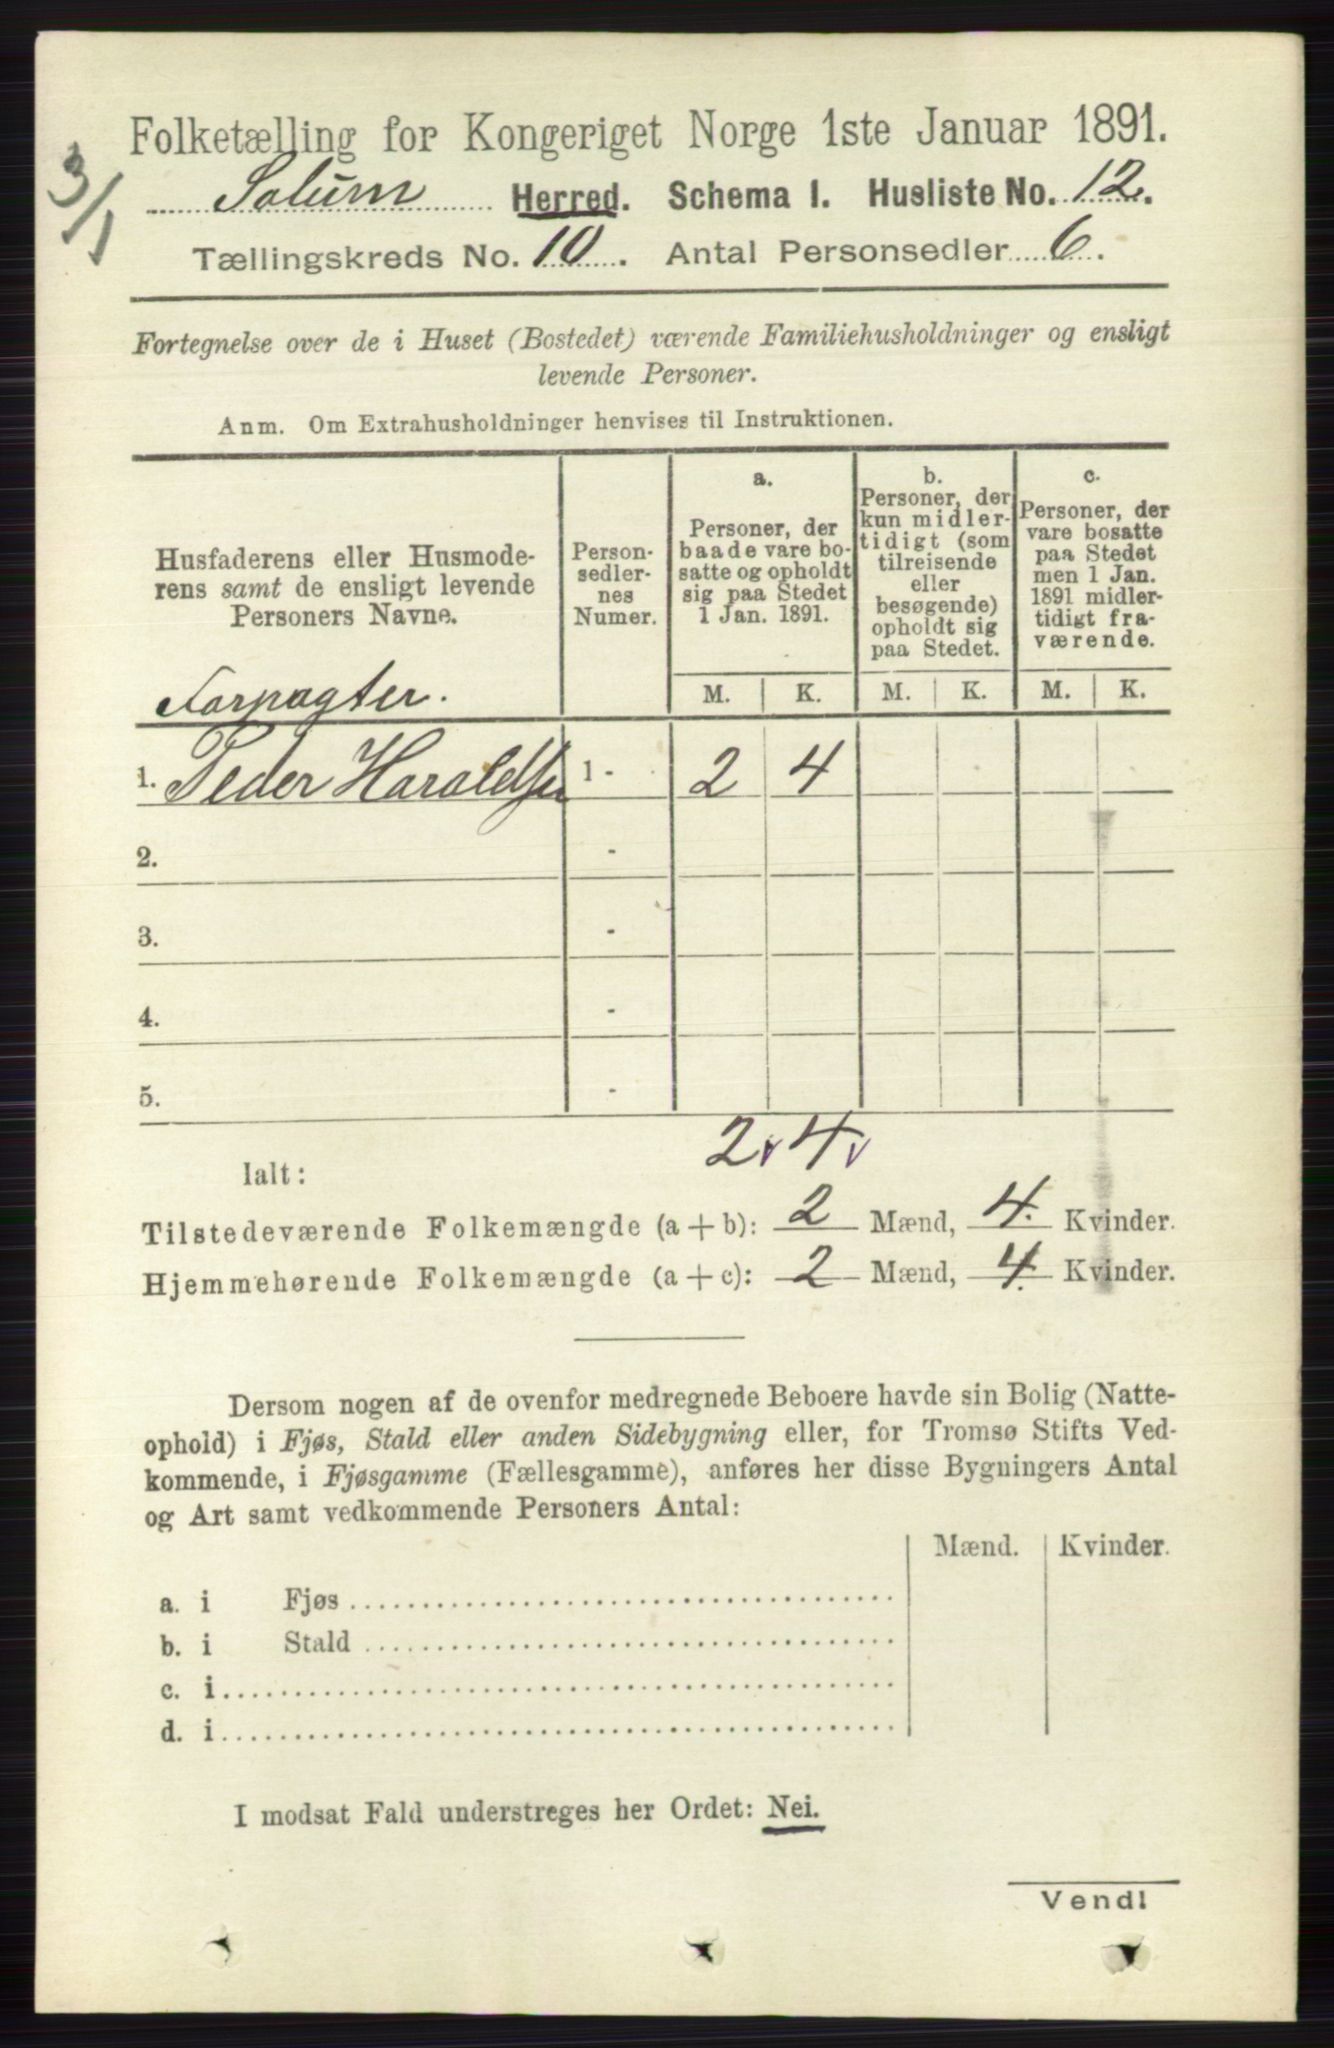 Folketælling for Kongeriget Norge 1ste Januar 1891.
3/1
Solum Herred. Schema I. Husliste No. 12.
Tællingskreds No. 10. Antal Personsedler 6.
Fortegnelse over de i Huset (Bostedet) værende Familiehusholdninger og ensligt
levende Personer.
Anm. Om Extrahusholdninger henvises til Instruktionen.
Husfaderens eller Husmode-
rens samt de ensligt levende
Personers Navne.
Forpagter.
Person-
sedler-
nes
Numer.
a.
Personer, der
baade vare bo-
satte og opholdt
sig paa Stedet
1 Jan. 1891.
b.
Personer, der
kun midler-
tidigt (som
tilreisende
eller
besøgende)
opholdt sig
paa Stedet.
c.
Personer, der
vare bosatte
paa Stedet
men 1 Jan.
1891 midler-
tidigt fra-
værende.
M. K. M. K. M. K.
1. Peder Haraldsen 1 - 2 4
2. -
3. -
4. -
5. -
2 v 4 v
Ialt:
Tilstedeværende Folkemængde (a + b): 2 Mænd, 4. Kvinder.
Hjemmehørende Folkemængde (a + c): 2 Mænd, 4. Kvinder.
Dersom nogen af de ovenfor medregnede Beboere havde sin Bolig (Natte-
ophold) i Fjøs, Stald eller anden Sidebygning eller, for Tromsø Stifts Ved-
kommende, i Fjøsgamme (Fællesgamme), anføres her disse Bygningers Antal
og Art samt vedkommende Personers Antal:
Mænd. Kvinder.
a. i Fjøs
b. i Stald
c. i
d. i
I modsat Fald understreges her Ordet: Nei.
Vendl